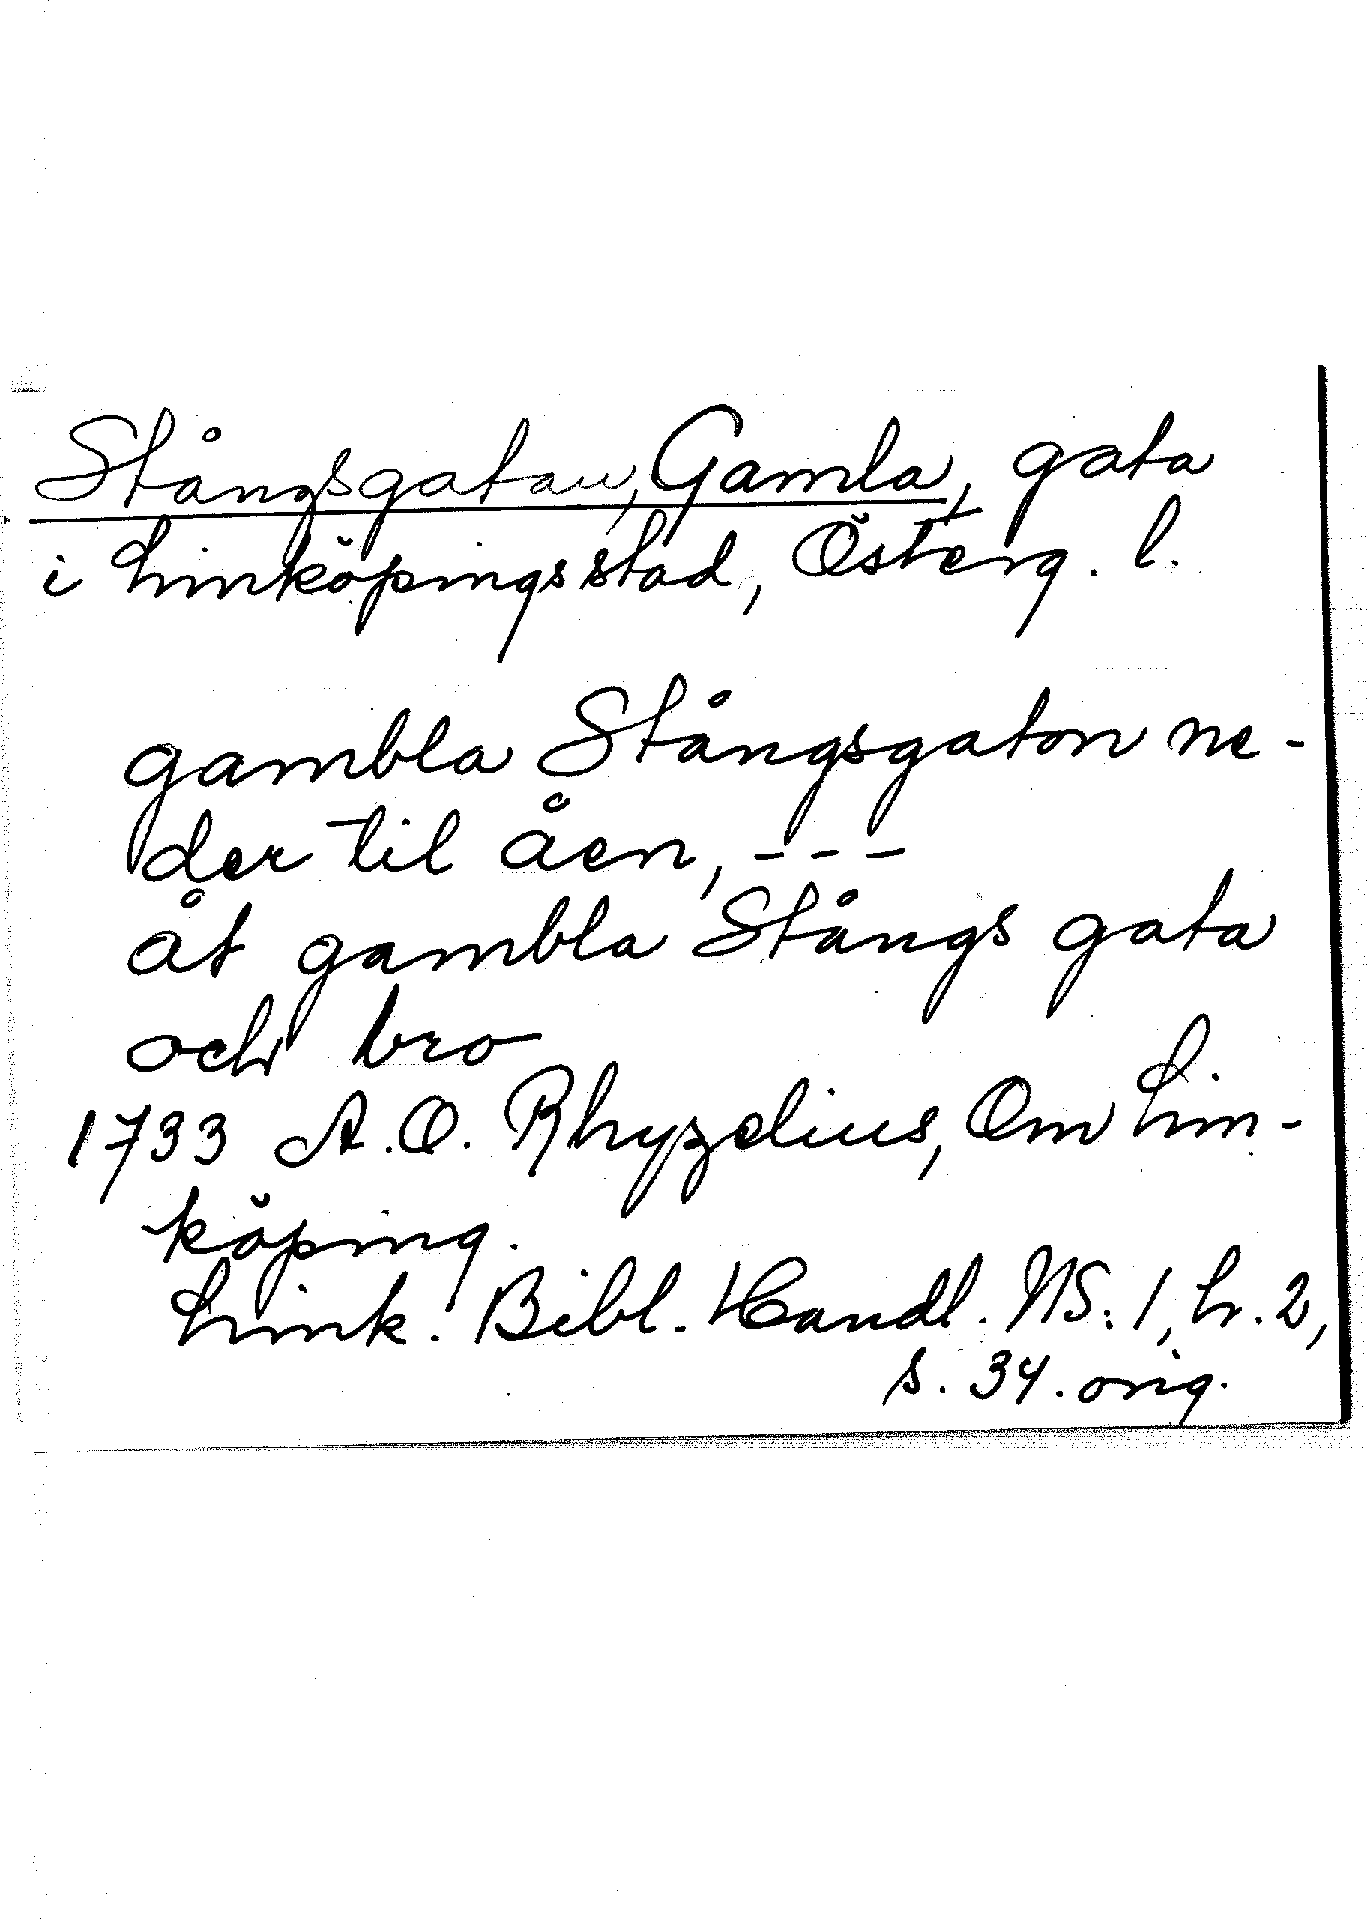 Stångsgatan, Gamla, gata
i Linköpings stad, Österg. l.
gambla Stångsgaton ne-
der til åen, ---
åt gambla Stångs gata
och bro
1733 A.O. Rhyzelius, Om Lin-
köping.
Link. Bibl. Handl. NS: 1, h. 2,
s. 34. orig.